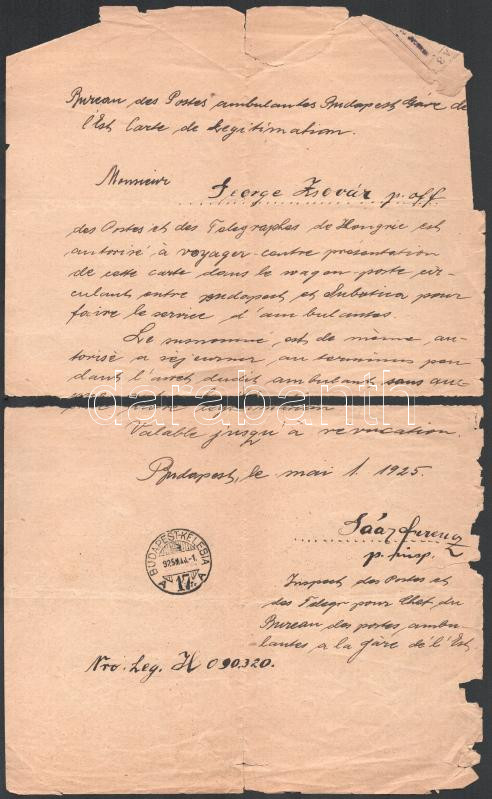 Bureau des Postes ambulantes Budapest Gáre de
l'Est Carte de Legitimation.
Monsieur
George Zsovár p. off
des Postes et des Telegraphes de Hongrie est
autorisé à voyager contre présentation
de cette carte dans le wagon-poste cir-
culant entre Budapest et Subotica pour
faire le service d'ambulantes.
Le susnommé, est de même, au-
torisé a séjourner au terminus pen
dant l'arret dudit ambulant sans au-
Valable jusqu'à révocation.
Budapest, le mai 1. 1925.
BUDAPEST-KELESIA
925 MÁJ.-1.
A 17. A
Saáz Ferenc
p. insp.
Inspect des Postes et
des Telegr pour Chef du
Bureau des postes, ambu-
lantes a la gàre de l'Est
Nro: Leg. H 090.320.
darabanth